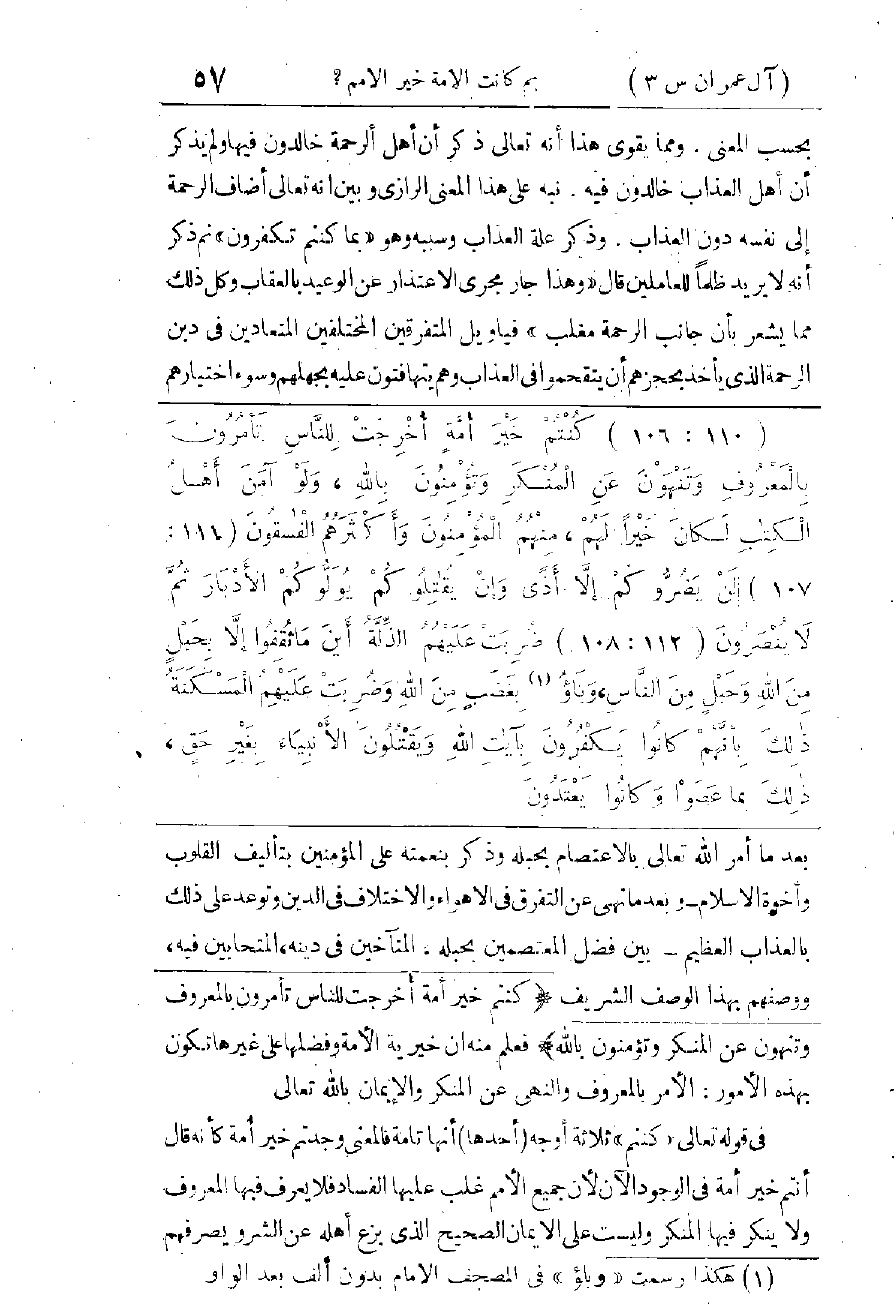 (آل عمران س ٣) بم كانت الامة خير الامم ? ٥٧
بحسب المعنى . ومما يقوى هذا أنه تعالى ذكر أن أهل الرحمة خالدون فيها ولم يذكر
أن أهل العذاب خالدون فيه . نبه على هذا المعنى الرازى وبين انه تعالى أضاف الرحمة
إلى نفسه دون العذاب . وذكر علة العذاب وسببه وهو «بما كنتم تكفرون» ثم ذكر
أنه لا يريد ظلماً للعاملين قال «وهذا جار مجرى الاعتذار عن الوعيد بالعقاب وكل ذلك
مما يشعر بأن جانب الرحمة مغلب » فياويل المتفرقين المختلفين المتعادين فى دين
الرحمة الذى يأخذ بحجزهم أن يتقحموا فى العذاب وهم يتهافتون عليه بجهلهم وسوء اختيارهم
( ١١٠ : ١٠٦ ) كُنْتُمْ خَيْرَ أُمَّةٍ أُخْرِجَتْ لِلنَّاسِ تَأْمُرُونَ
بِالْمَعْرُوفِ وَتَنْهَوْنَ عَنِ الْمُنْكَرِ وَتُؤْمِنُونَ بِاللهِ ، وَلَوْ آمَنَ أَهْلُ
الْكِتٰبِ لَكَانَ خَيْراً لَهُمْ ، مِنْهُمُ الْمُؤْمِنُونَ وَأَكْثَرُهُمُ الْفٰسِقُونَ (١١١ :
١٠٧ ) لَنْ يَضُرُّوكُمْ إِلَّا أَذًى وَإِنْ يُقٰتِلُوكُمْ يُوَلُّوكُمْ الأَدْبَارَ ثُمَّ
لَا يُنْصَرُونَ ( ١١٢ : ١٠٨ ) ضُرِبَتْ عَلَيْهِمُ الذِّلَّةُ أَيْنَ مَا ثُقِفُوا إِلَّا بِحَبْلٍ
مِنَ اللهِ وَحَبْلٍ مِنَ النَّاسِ، وَبَاؤُ (١) بِغَضَبٍ مِنَ اللهِ وَضُرِبَتْ عَلَيْهِمُ الْمَسْكَنَةُ
ذٰلِكَ بِأَنَّهُمْ كَانُوا يَكْفُرُونَ بِآيٰتِ اللهِ وَيَقْتُلُونَ الأَنْبِيَاءَ بِغَيْرِ حَقٍ ،
ذٰلِكَ بِمَا عَصَوْا وَكَانُوا يَعْتَدُونَ
بعد ما أمر الله تعالى بالاعتصام بحبله وذكر بنعمته على المؤمنين بتأليف القلوب
وأخوة الاسلام – وبعد ما نهى عن التفرق فى الاهواء والاختلاف فى الدين وتوعد على ذلك
بالعذاب العظيم – بين فضل المعتصمين بحبله ، المتآخين فى دينه، المتحابين فيه،
ووصفهم بهذا الوصف الشريف ﴿ كنتم خير أمة أخرجت للناس تأمرون بالمعروف
وتنهون عن المنكر وتؤمنون بالله﴾ فعلم منه ان خيرية الأمة وفضلها على غيرها تكون
بهذه الأمور : الأمر بالمعروف والنهى عن المنكر والإيمان بالله تعالى
فى قوله تعالى « كنتم » ثلاثة أوجه (أحدها) أنها تامة فالمعنى وجدتم خير أمة كأنه قال
أنتم خير أمة فى الوجود الآن لأن جميع الأمم غلب عليها الفساد فلا يعرف فيها المعروف
ولا ينكر فيها المنكر وليست على الايمان الصحيح الذى يزع أهله عن الشر ويصرفهم
(١) هكذا رسمت « وباؤ » فى المصحف الامام بدون ألف بعد الواو